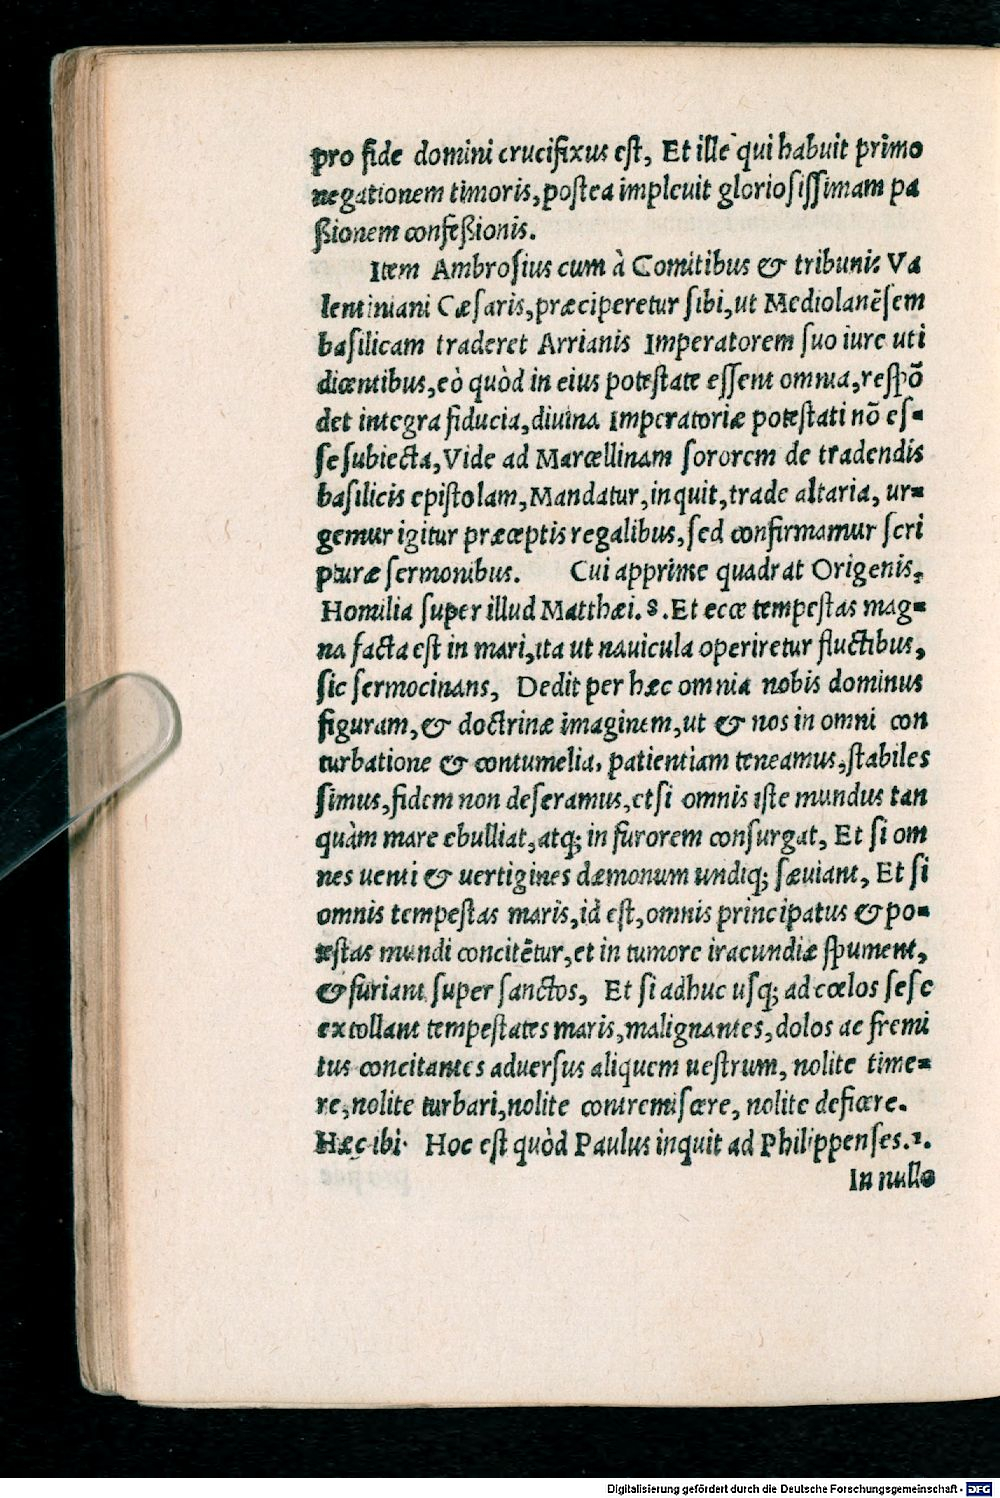 pro fide domini crucifixus est, Et ille qui habuit primo
negationem timoris, postea impleuit gloriosissimam pa
ßionem confeßionis.
Item Ambrosius cum à Comitibus & tribunis Va
lentiniani Cæsaris, præciperetur sibi, ut Mediolanẽsem
basilicam traderet Arrianis Imperatorem suo iure uti
dicentibus, eò quòd in eius potestate essent omnia, respõ
det integra fiducia, diuina Imperatoriæ potestati nõ es=
se subiecta, Vide ad Marcellinam sororem de tradendis
basilicis epistolam, Mandatur, inquit, trade altaria, ur=
gemur igitur præceptis regalibus, sed confirmamur scri
pturæ sermonibus. Cui apprime quadrat Origenis,
Homilia super illud Matthæi. 8. Et ecce tempestas mag=
na facta est in mari, ita ut nauicula operiretur fluctibus,
sic sermocinans, Dedit per hæc omnia nobis dominus
figuram, & doctrinæ imaginem, ut & nos in omni con
turbatione & contumelia, patientiam teneamus, stabiles
simus, fidem non deseramus, etsi omnis iste mundus tan
quàm mare ebulliat, atq; in furorem consurgat, Et si om
nes uenti & uertigines dæmonum undiq; sæuiant, Et si
omnis tempestas maris, id est, omnis principatus & po=
testas mundi concitẽtur, et in tumore iracundiæ spument,
& furiant super sanctos, Et si adhuc usq; ad cœlos sese
extollant tempestates maris, malignantes, dolos ac fremi
tus concitantes aduersus aliquem uestrum, nolite time=
re, nolite turbari, nolite contremiscere, nolite deficere.
Hæc ibi. Hoc est quòd Paulus inquit ad Philippenses. 1.
In nullo
Digitalisierung gefördert durch die Deutsche Forschungsgemeinschaft - DFG